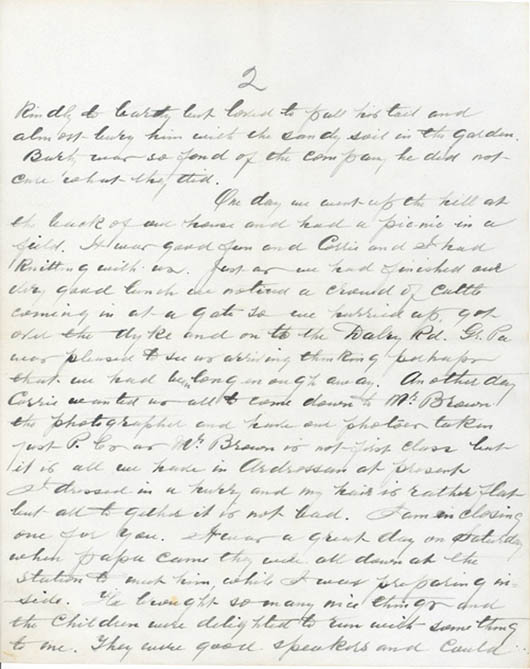 2
Kindly to Barty but loved to pull his tail and
almost bury him with the sandy soil in the garden.
Barty was so fond of the company he did not
care what they did.
One day we went up the hill at
the back of our house and had a picnic in a
field. It was good fun and Corrie and I had
Knitting with us. Just as we had finished our
very good lunch we noticed a crowd of cattle
coming in at a gate so we hurried up got
over the dyke and on to the Dalry Rd. Gr. Pa
was pleased to see us arriving thinking perhaps
that we had been long enough away. Another day
Corrie wanted us all to come down to Mr Brown
the photographer and have our photoes taken
just P. Co as Mr Brown is not first class but
it is all we have in Ardrossan at present
I dressed in a hurry and my hair is rather flat
but all to gether it is not bad. I am enclosing
one for you. It was a great day on Saturday
when papa came they were all down at the
station to meet him, while I was preparing in-
side. He brought so many nice things and
the Children were delighted to run with something
to me. They were good speakers and could